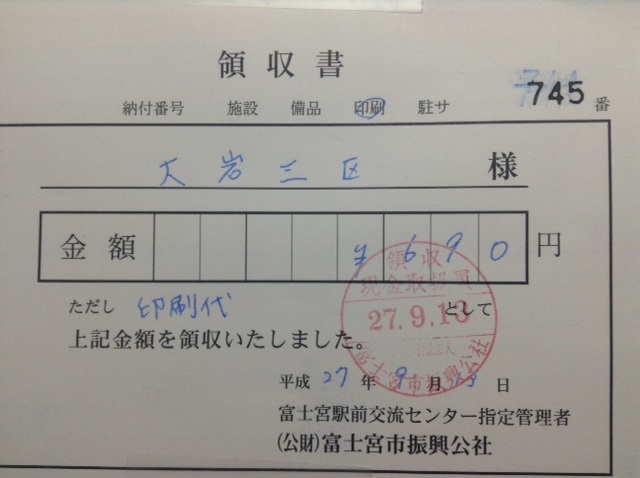 領収書
745 番
納付番号 施設 備品 印刷 駐サ
大岩三区 様
金額 ¥690 円
ただし 印刷代 として
上記金額を領収いたしました。
領収
現金取扱員
27.9.13
富士宮市振興公社
平成 27 年 9 月 13 日
富士宮駅前交流センター指定管理者
(公財)富士宮市振興公社